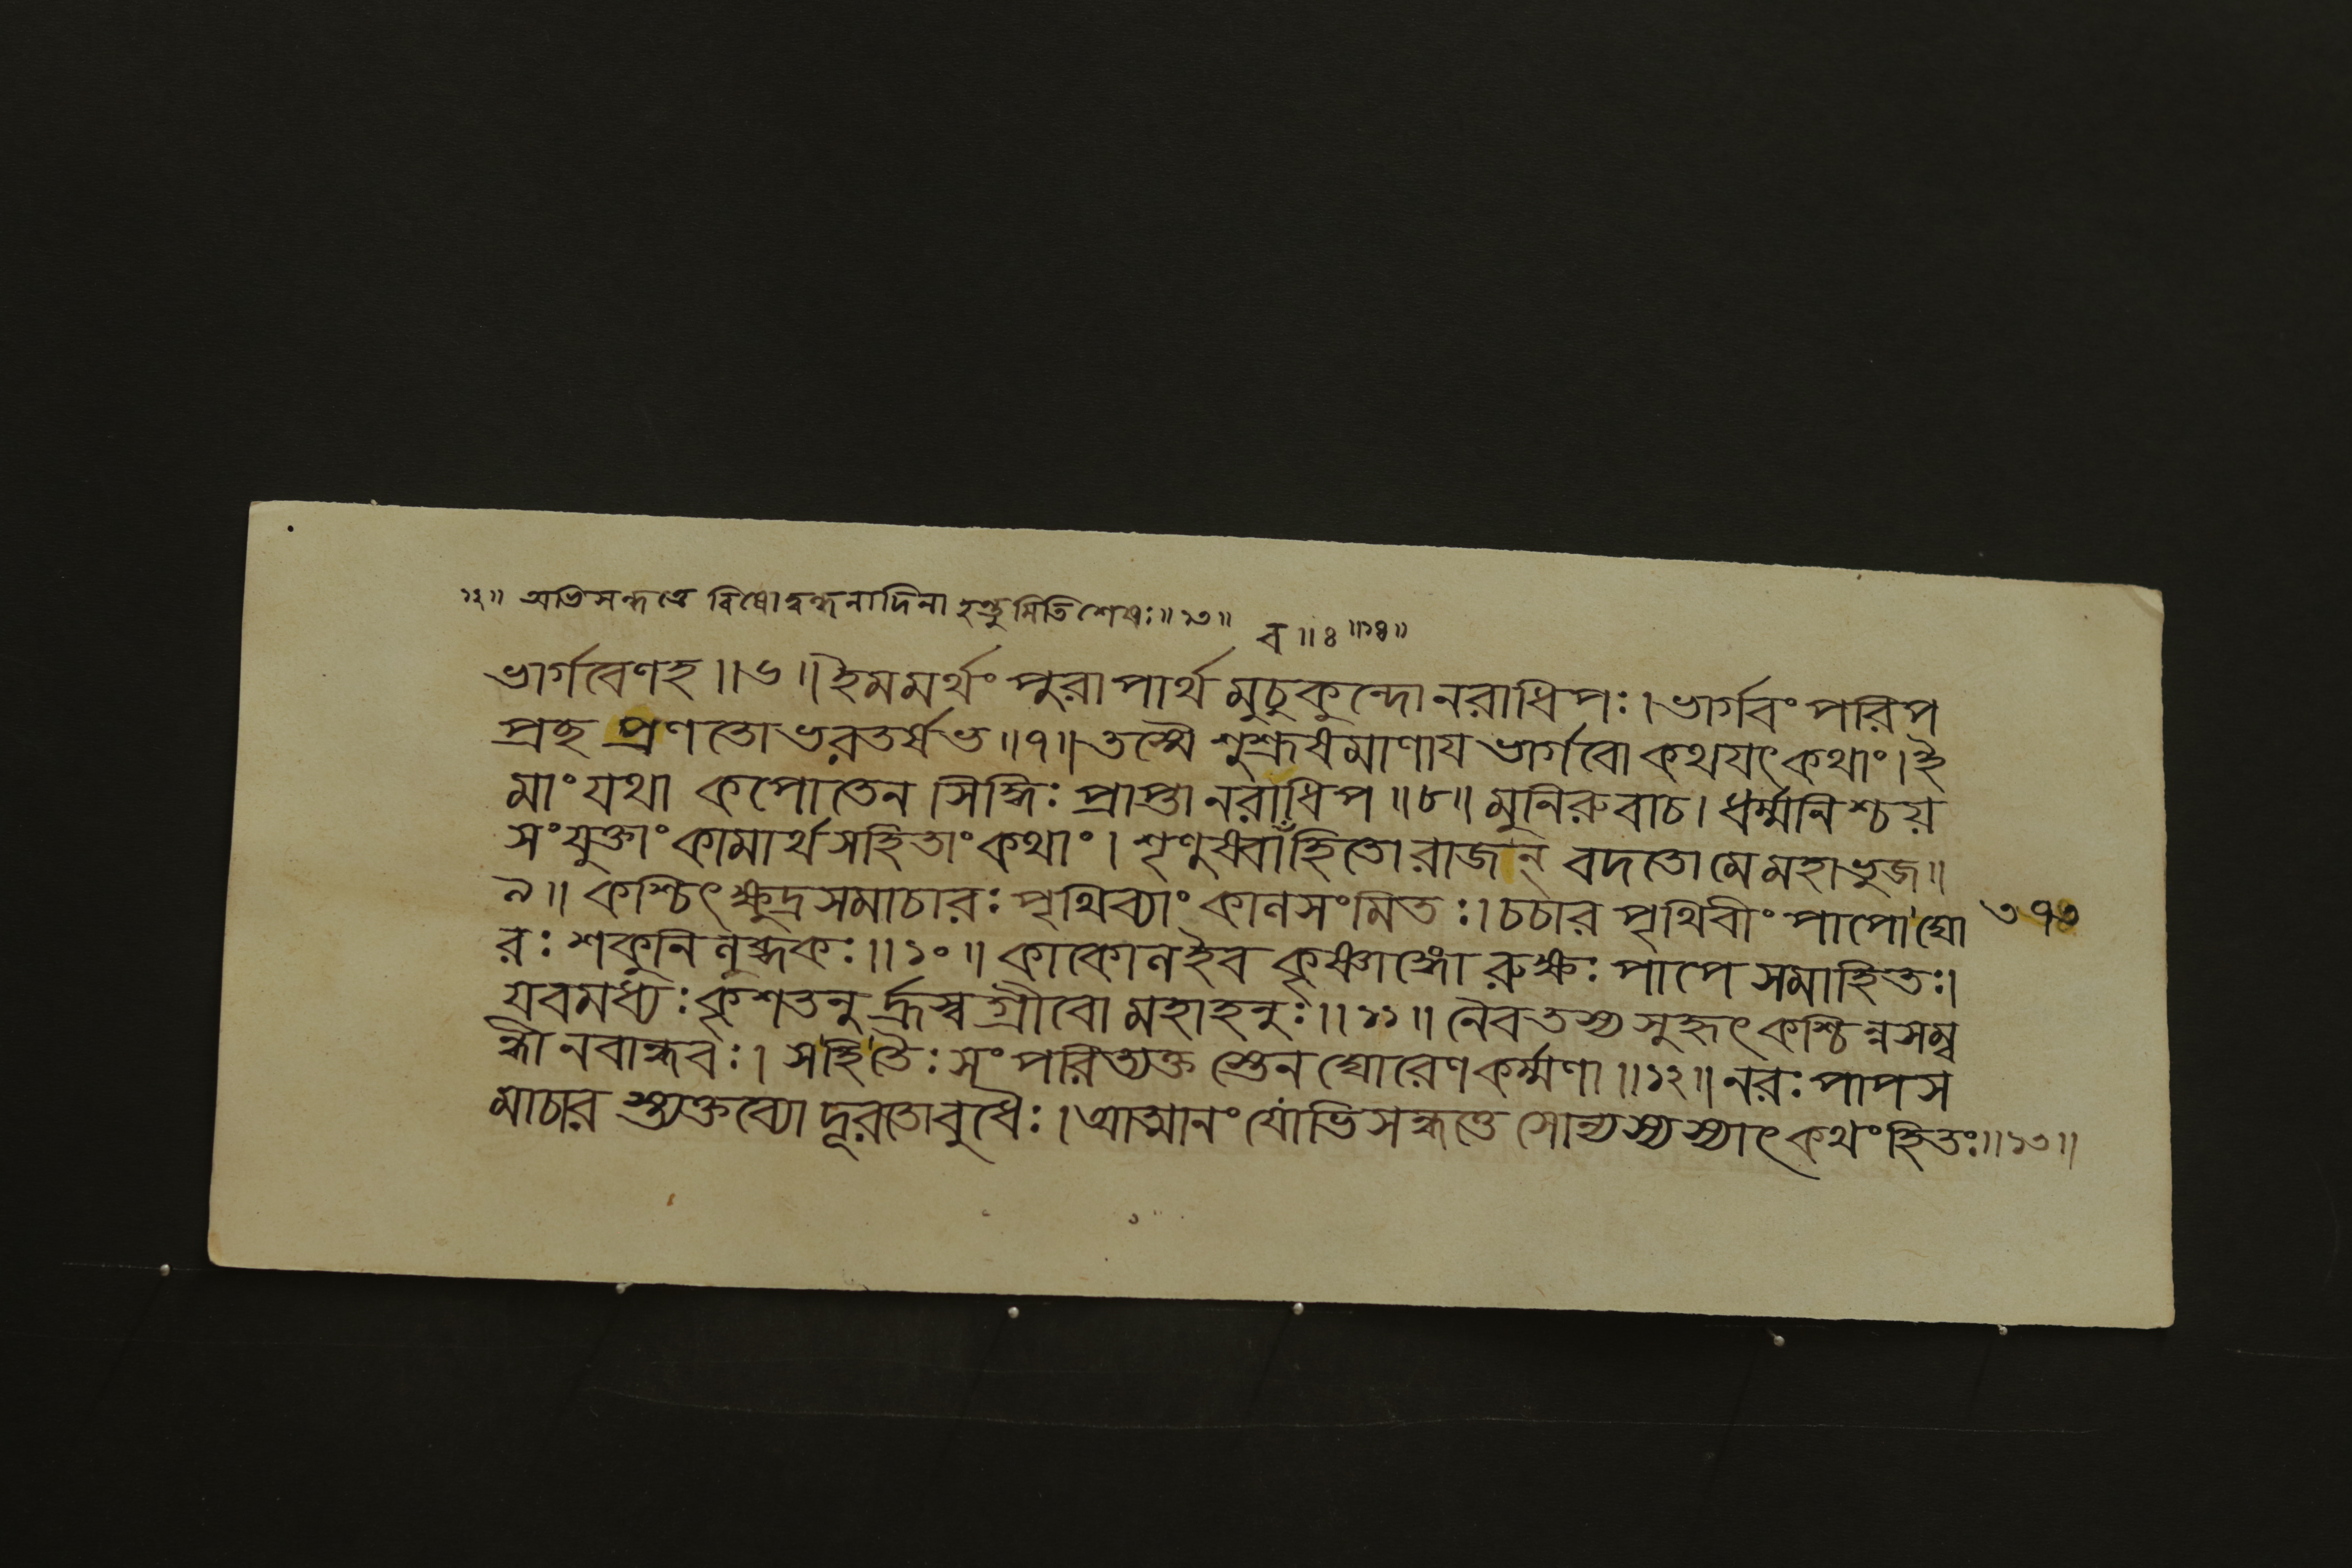 ১২॥ অভিসন্ধত্তে বিষোদ্বন্ধনাদিনা হন্তুমিতিশেষঃ॥১৩॥ ব॥৪॥১৪॥
ভার্গবেণহ॥৬॥ইমমর্থং পুরাপার্থ মুচুকুন্দোনরাধিপঃ।ভার্গবং পরিপ
প্রছ প্রণতোভরতর্ষভ॥৭॥তস্মৈ শুশ্রূষমাণায ভার্গবোকথযৎকথাং।ই
মাংযথা কপোতেন সিদ্ধিঃ প্রাপ্তানরাধিপ॥৮॥মুনিরুবাচ।ধর্ম্মনিশ্চয়
সংযুক্তাং কামার্থসহিতাং কথাং। শৃণুষ্ববাঁহিতোরাজন্ বদতোমেমহাভুজ॥
৯॥ কশ্চিৎক্ষুদ্রসমাচারঃ পৃথিব্যাং কালসংমিতঃ।চচার পৃথিবীং পাপোঘো ৩৭৩
রঃ শকুনিলুব্ধকঃ॥১০॥ কাকোলইব কৃষ্ণাঙ্গো রুক্ষঃ পাপে সমাহিতঃ।
যবমধ্যঃ কৃশতনুর্হ্রস্বগ্রীবো মহাহনুঃ॥১১॥ নৈবতস্য সুহৃৎকশ্চিন্নসম্ব
ন্ধীনবান্ধবঃ। সহিতৈঃ সংপরিত্যক্তস্তেনঘোরেণকর্ম্মণা॥১২॥নরঃ পাপস
মাচারস্ত্যক্তব্যোদূরতোবুধৈঃ।আত্মানংযোভিসন্ধত্তে সোন্যস্যস্যাৎকথংহিতঃ॥১৩॥